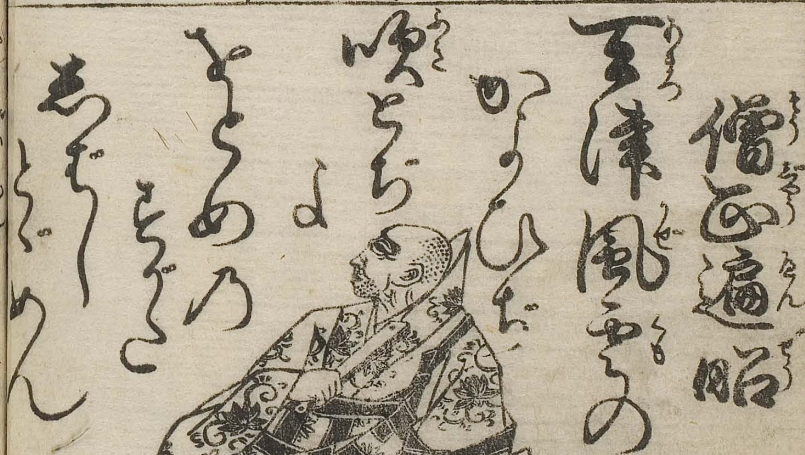 僧正遍昭
天津風雲の
かよひぢ
吹とぢ
よ
をとめの
すがた
しばし
とゞめん